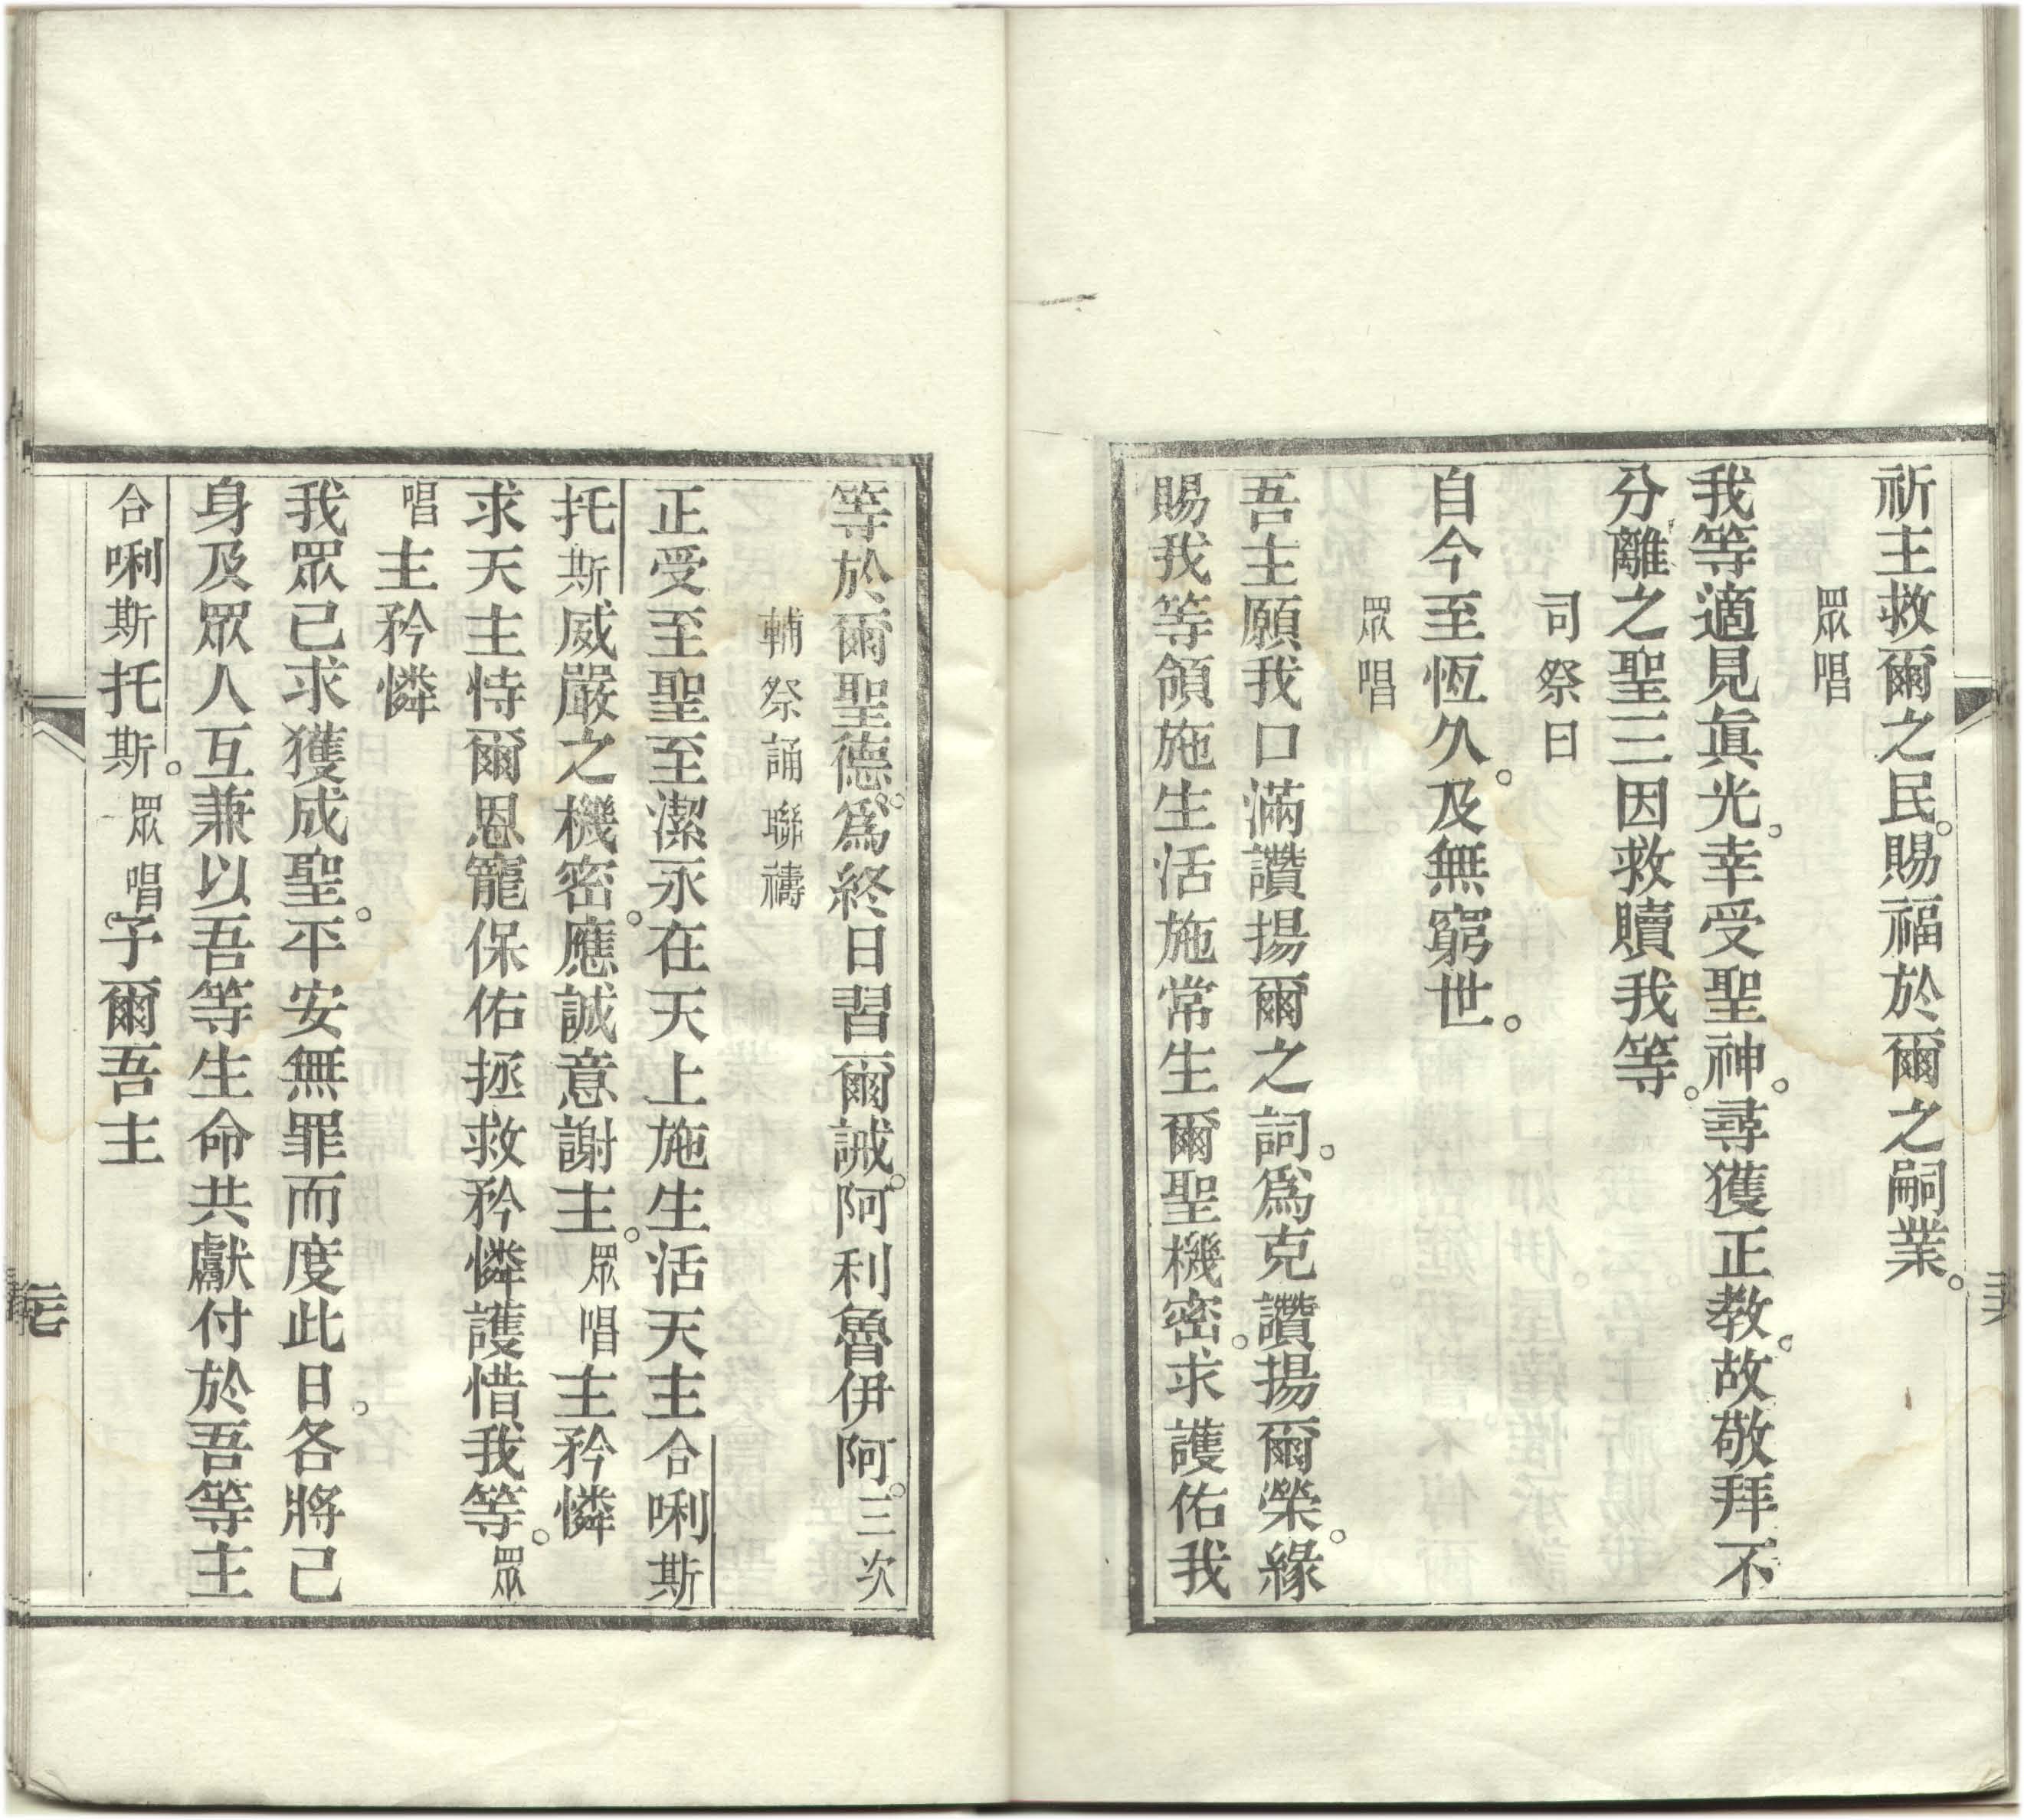 祈主救爾之民。賜福於爾之嗣業。
眾唱
我等適見眞光。幸受聖神。尋獲正教。故敬拜不
分離之聖三因救贖我等。
司祭曰
自今至恆久。及無窮世。
眾唱
吾主願我口滿讚揚爾之詞。爲克讚揚爾榮。緣
賜我等領施生活施常生爾聖機密。求護佑我
等於爾聖德。爲終日習爾誡。阿利魯伊阿。三次
輔祭誦聯禱
正受至聖至潔永在天上施生活天主合唎斯
托斯威嚴之機密。應誠意謝主。眾唱主矜憐
求天主恃爾恩寵保佑拯救矜憐護惜我等。眾
唱主矜憐
我眾已求獲成聖。平安無罪而度此日。各將己
身及眾人互兼以吾等生命共獻付於吾等主
合唎斯托斯。眾唱。予爾吾主